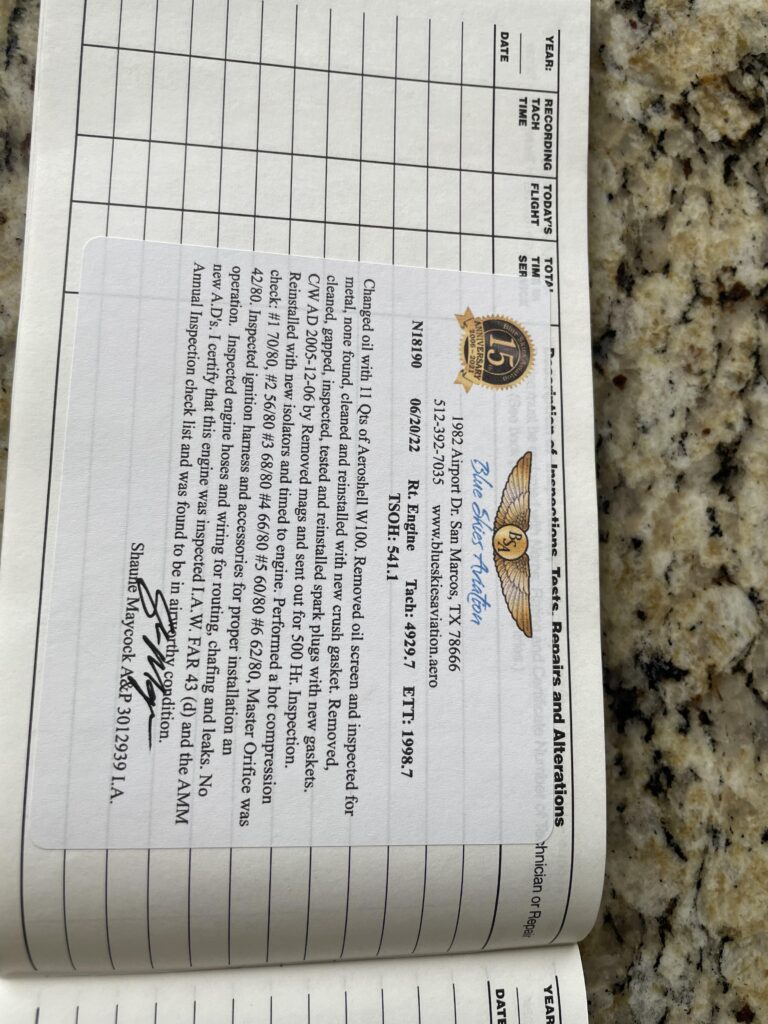 YEAR:
DATE
RECORDING
TACH
TIME
TODAY'S
FLIGHT
TOTAL
TIM
SER
Description of Inspections, Tests, Repairs and Alterations
chnician or Repair
15
ANNIVERSARY
2006 - 2021
BSA
Blue Skies Aviation
1982 Airport Dr. San Marcos, TX 78666
512-392-7035 www.blueskiesaviation.aero
N18190 06/20/22 Rt. Engine Tach: 4929.7 ETT: 1998.7
TSOH: 541.1
Changed oil with 11 Qts of Aeroshell W100. Removed oil screen and inspected for
metal, none found, cleaned and reinstalled with new crush gasket. Removed,
cleaned, gapped, inspected, tested and reinstalled spark plugs with new gaskets.
C/W AD 2005-12-06 by Removed mags and sent out for 500 Hr. Inspection.
Reinstalled with new isolators and timed to engine. Performed a hot compression
check: #1 70/80, #2 56/80 #3 68/80 #4 66/80 #5 60/80 #6 62/80, Master Orifice was
42/80. Inspected ignition harness and accessories for proper installation an
operation. Inspected engine hoses and wiring for routing, chafing and leaks. No
new A.D's. I certify that this engine was inspected I.A.W. FAR 43 (d) and the AMM
Annual Inspection check list and was found to be in airworthy condition.
Shaune Maycock A&P 3012939 I.A.
YEAR
DATE